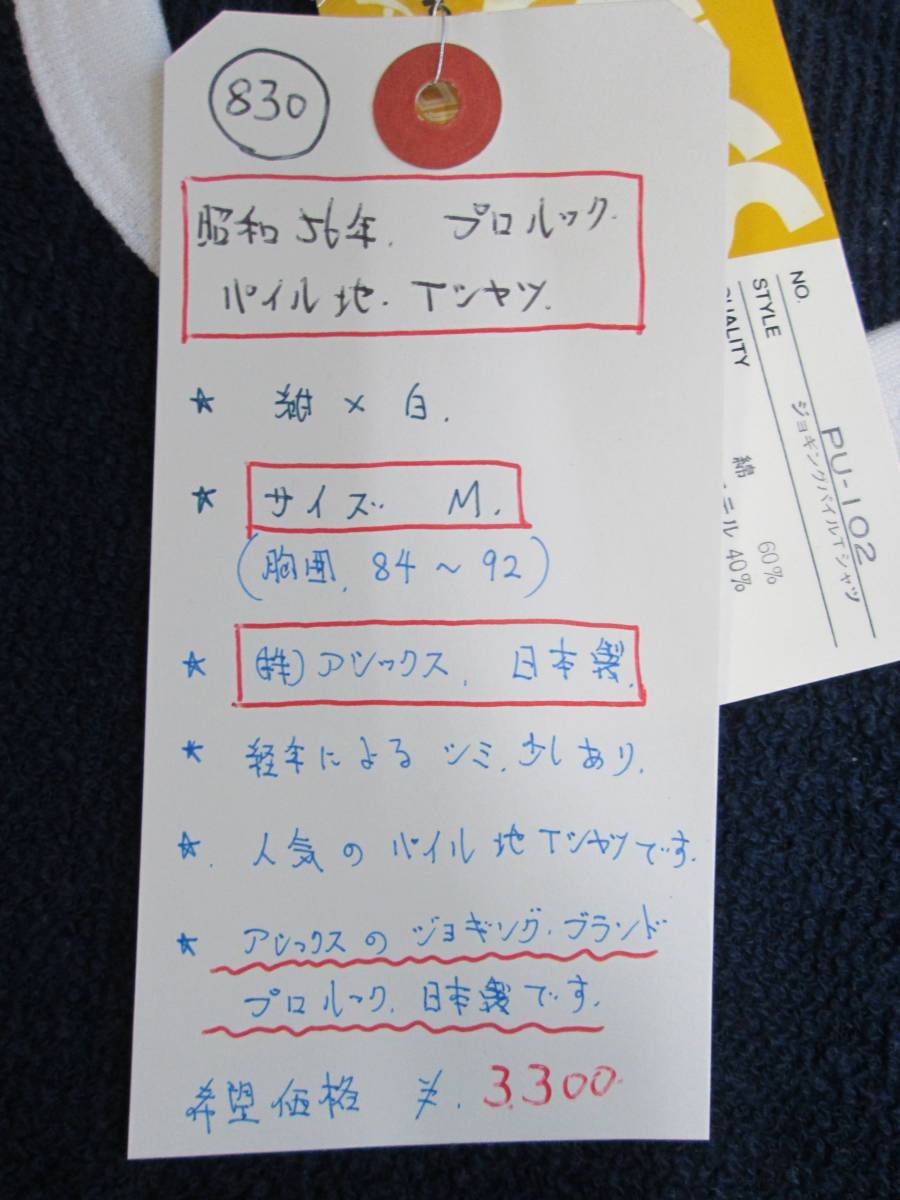 830
昭和56年. プロルック.
パイル地. Tシャツ.
★ 紺×白.
★ サイズ M.
(胸囲. 84~92)
★ (株)アシックス. 日本製.
★ 経年によるシミ.少しあり.
★. 人気のパイル地Tシャツです.
★ アシックスのジョギング.ブランド
プロルック.日本製です.
希望価格 ¥.3.300.
NO. PU-102
STYLE ジョギングパイルTシャツ
UALITY 綿 60%
ニル 40%